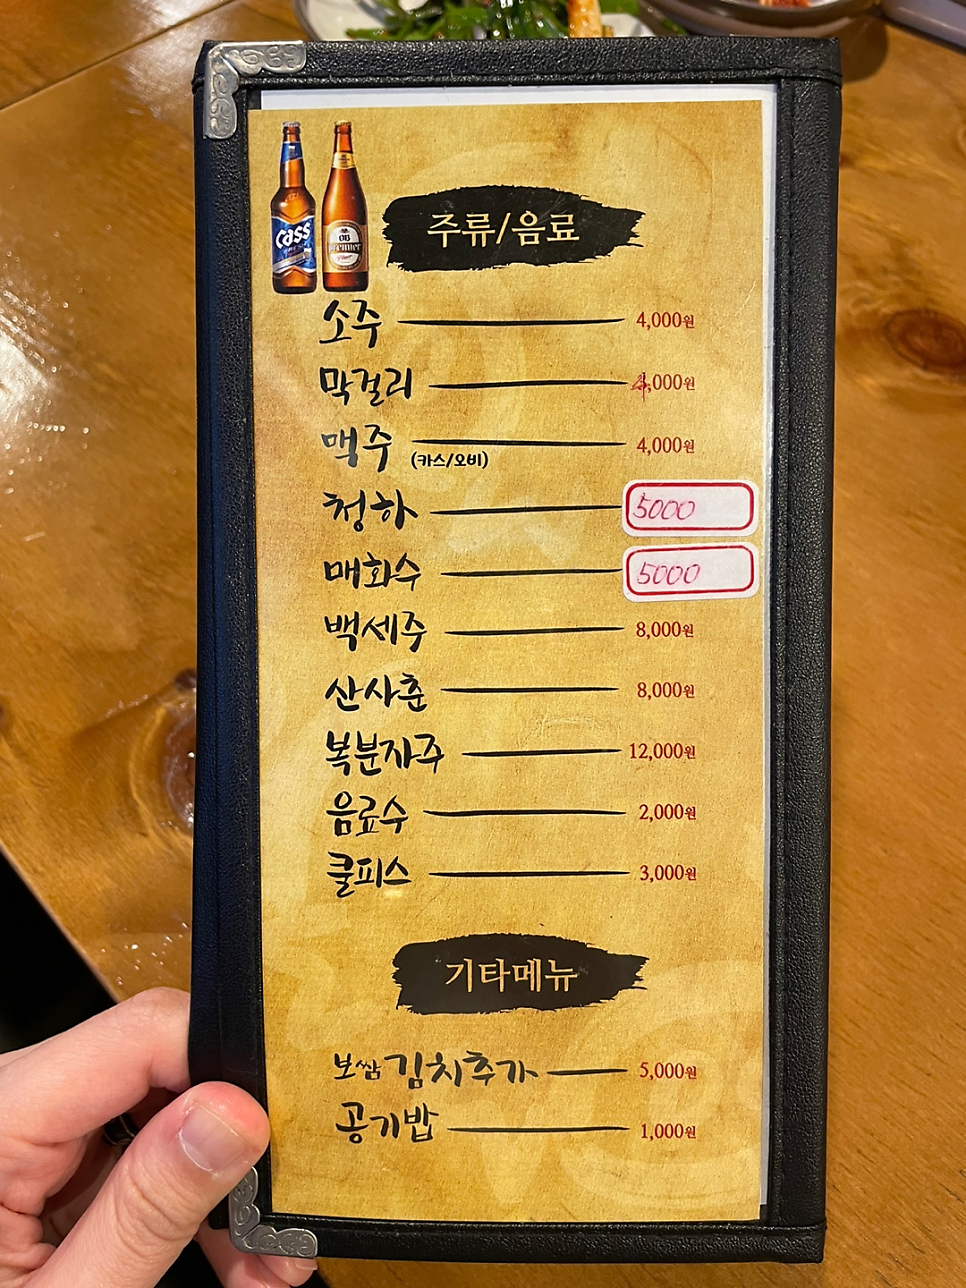 Cass
OB
Premier
주류/음료
소주 4,000원
막걸리 4,000원
맥주 (카스/오비) 4,000원
청하 5000
매화수 5000
백세주 8,000원
산사춘 8,000원
복분자주 12,000원
음료수 2,000원
쿨피스 3,000원
기타메뉴
보쌈김치추가 5,000원
공기밥 1,000원